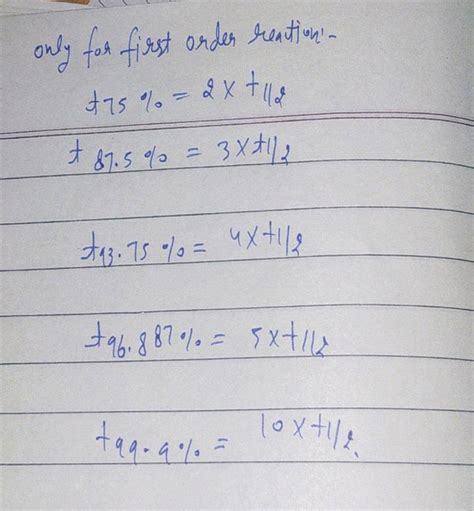 only for first order reaction:-
t75 % = 2 x t1/2
t 87.5 % = 3 x t1/2
t93.75 % = 4 x t1/2
t96.887% = 5 x t1/2
t99.9% = 10 x t1/2.